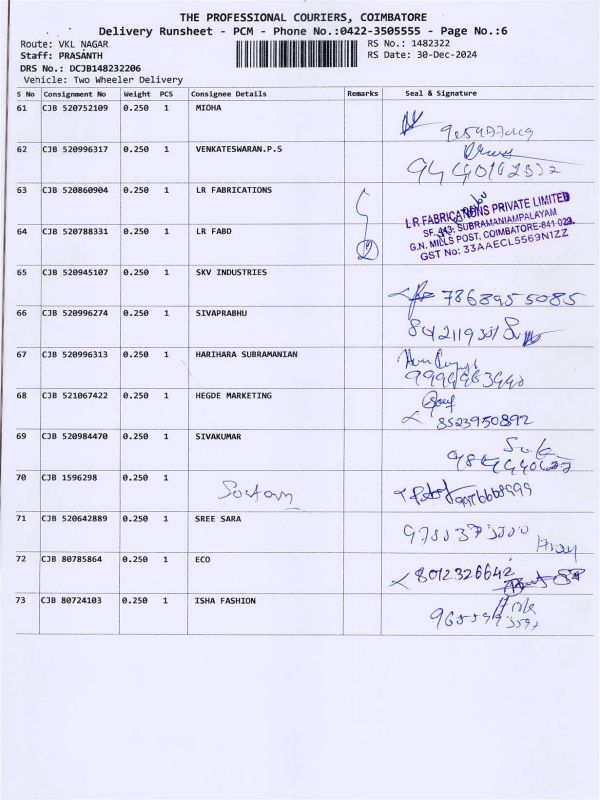 THE PROFESSIONAL COURIERS, COIMBATORE
Delivery Runsheet - PCM - Phone No.:0422-3505555 - Page No.:6
Route: VKL NAGAR RS No.: 1482322
Staff: PRASANTH RS Date: 30-Dec-2024
DRS No.: DCJB148232206
Vehicle: Two Wheeler Delivery
S No Consignment No Weight PCS Consignee Details Remarks Seal & Signature
61 CJB 520752109 0.250 1 MIOHA
62 CJB 520996317 0.250 1 VENKATESWARAN.P.S
63 CJB 520860904 0.250 1 LR FABRICATIONS
L R FABRICATIONS PRIVATE LIMITED
SF. 443, SUBRAMANIAMPALAYAM
G.N. MILLS POST, COIMBATORE-641 029.
GST No: 33AAECL5569N1ZZ
64 CJB 520788331 0.250 1 LR FABD 2
65 CJB 520945107 0.250 1 SKV INDUSTRIES 7868955085
66 CJB 520996274 0.250 1 SIVAPRABHU
67 CJB 520996313 0.250 1 HARIHARA SUBRAMANIAN
68 CJB 521067422 0.250 1 HEGDE MARKETING 8523950892
69 CJB 520984470 0.250 1 SIVAKUMAR
70 CJB 1596298 0.250 1
71 CJB 520642889 0.250 1 SREE SARA
72 CJB 80785864 0.250 1 ECO 8012326642
73 CJB 80724103 0.250 1 ISHA FASHION